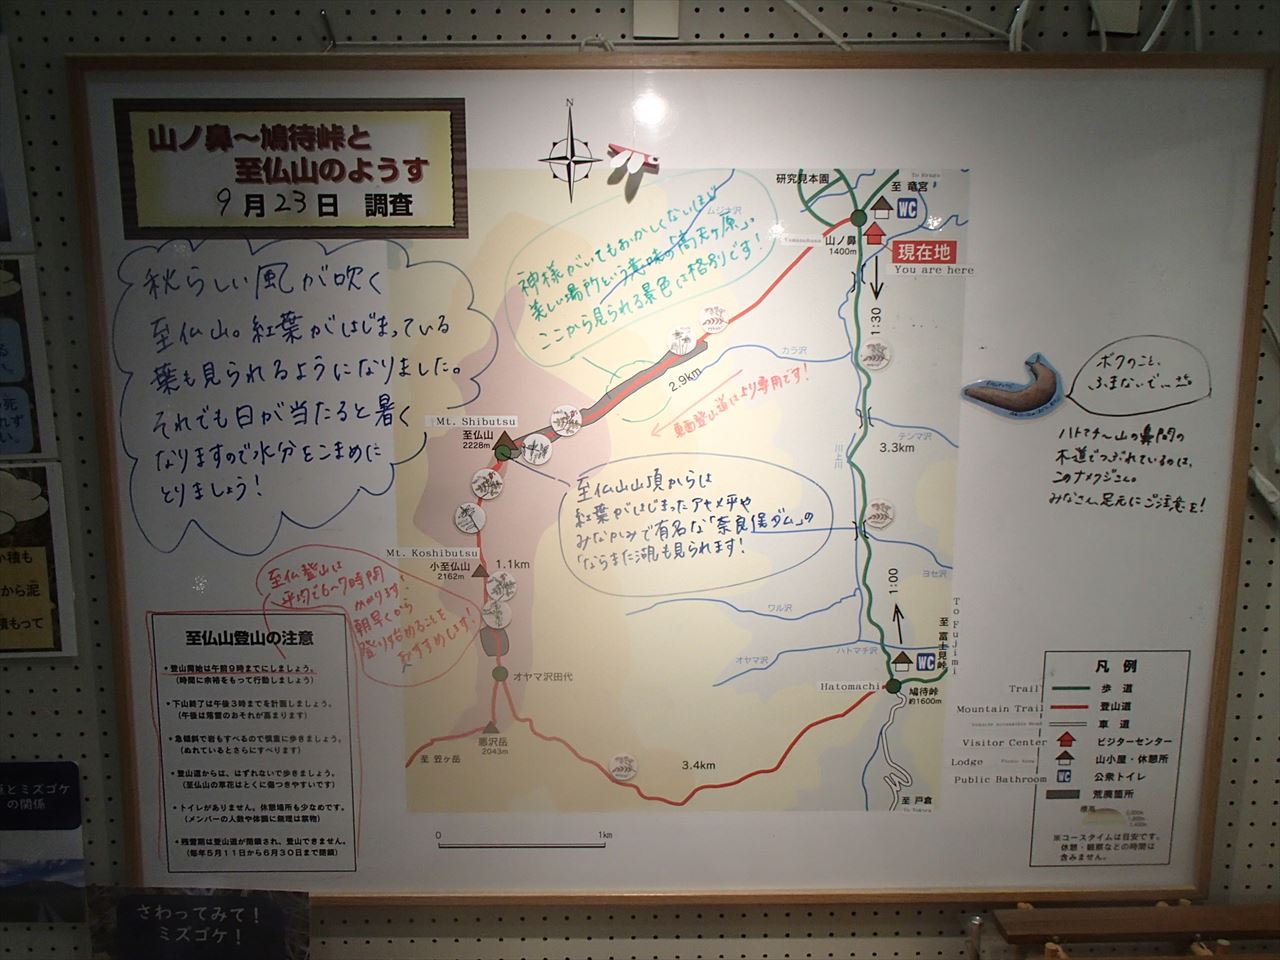 山ノ鼻〜鳩待峠と
至仏山のようす
9月23日 調査
秋らしい風が吹く
至仏山。紅葉がはじまっている
葉も見られるようになりました。
それでも日が当たると暑く
なりますので水分をこまめに
とりましょう！
N
神様がいてもおかしくないほど
美しい場所という意味の「高天ヶ原」、
ここから見られる景色は格別です！
ムジナ沢
研究見本園
至 竜宮
WC
山ノ鼻
1400m
現在地
You are here
1:30
カラ沢
2.9km
東面登山道は上り専用です！
Mt. Shibutsu
至仏山
2228m
テンマ沢
川上川
3.3km
至仏山山頂からは
紅葉がはじまったアヤメ平や
みなかみで有名な「奈良俣ダム」の
「ならまた湖」も見られます！
ボクのこと、
ふまないで…
ハトマチ〜山の鼻間の
木道でつぶれているのは、
このナメクジさん。
みなさん足元にご注意を！
Mt. Koshibutsu
小至仏山
2162m
1.1km
至仏登山は
平均で6〜7時間
かかります！
朝早くから
登り始めることを
おすすめします！
ヨセ沢
1:00
ワル沢
ハトマチ沢
オヤマ沢
オヤマ沢田代
To Fujimi
至 富士見峠
WC
Hatomachi
鳩待峠
約1600m
悪沢岳
2043m
至 笠ヶ岳
3.4km
至 戸倉
0
1km
至仏山登山の注意
・登山開始は午前9時までにしましょう。
(時間に余裕をもって行動しましょう)
・下山終了は午後3時までを計画しましょう。
(午後は落雷のおそれが高まります)
・急傾斜で岩もすべるので慎重に歩きましょう。
(ぬれているとさらにすべります)
・登山道からは、はずれないで歩きましょう。
(至仏山の草花はとくに傷つきやすいです)
・トイレがありません。休憩場所も少なめです。
(メンバーの人数や体調に無理は禁物)
・残雪期は登山道が閉鎖され、登山できません。
(毎年5月11日から6月30日まで閉鎖)
凡例
Trail 歩道
Mountain Trail 登山道
車道
Visitor Center ビジターセンター
Lodge 山小屋・休憩所
Public Bathroom WC 公衆トイレ
荒廃箇所
標高
※コースタイムは目安です。
休憩・観察などの時間は
含みません。
とミズゴケ
の関係
さわってみて！
ミズゴケ！